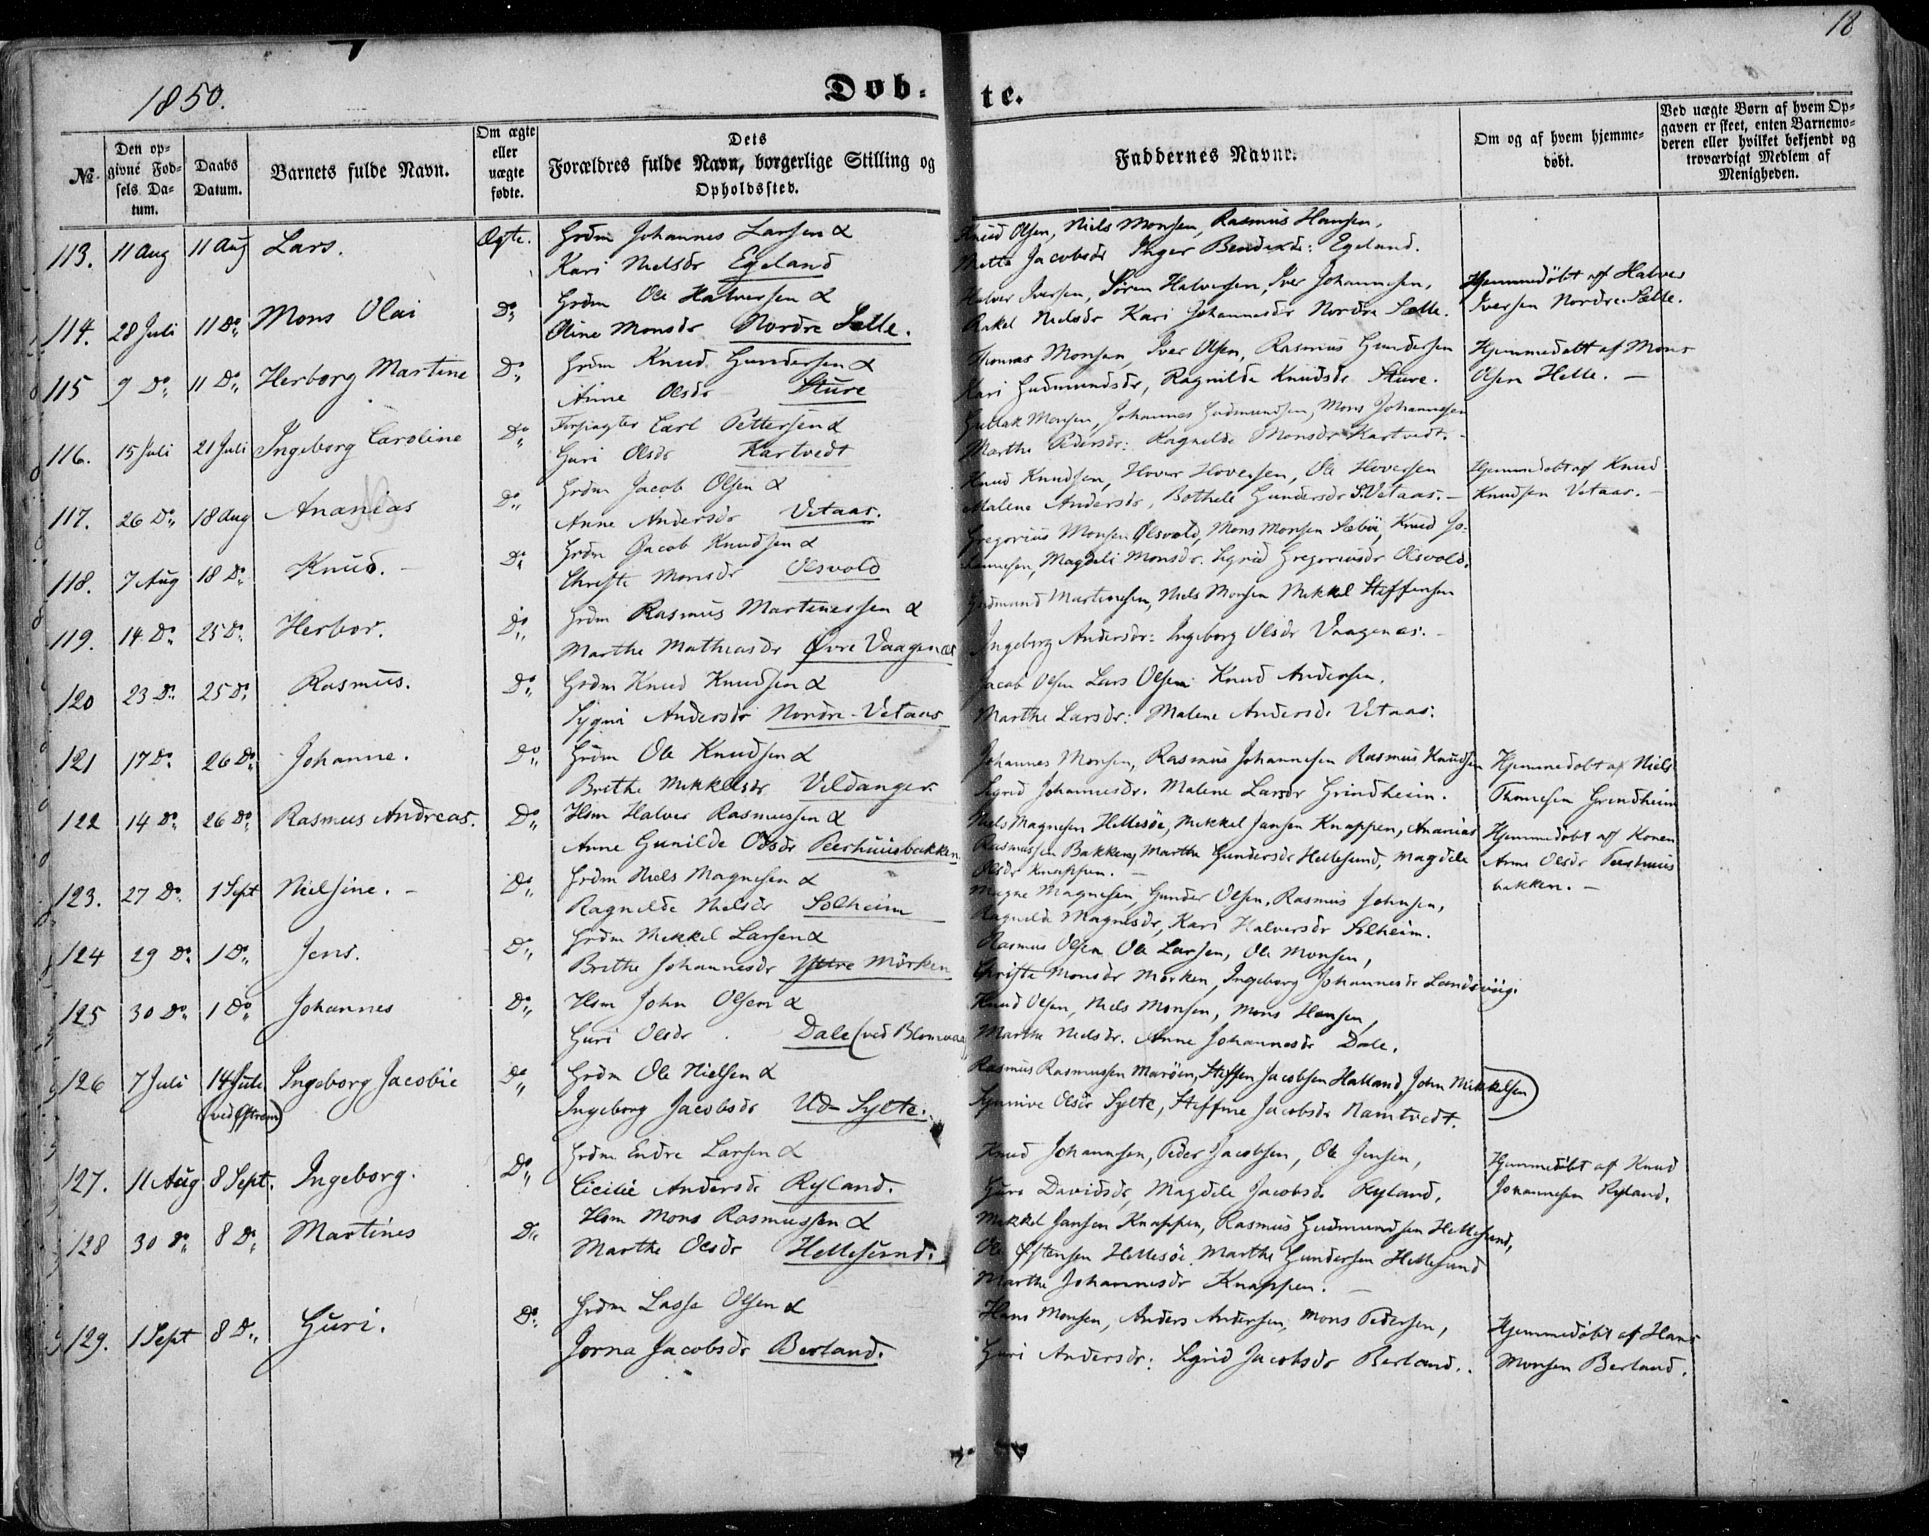 18
1850.
Døb- te.
№
Den opgivne Fødsels Datum.
Daabs Datum.
Barnets fulde Navn.
Om ægte eller uægte fødte.
Dets Forældres fulde Navn, borgerlige Stilling og Opholdssted.
Faddernes Navne.
Om og af hvem hjemmedøbt.
Ved uægte Børn af hvem Opgaven er skeet, enten Barnemoderen eller hvilket bekjendt og troværdigt Medlem af Menigheden.
113. 11 Aug 11 Aug Lars. Ægte. Grdm Johannes Larsen & Knud Olsen, Niels Monsen, Rasmus Hansen,
Kari Nielsdr Egeland Mette Jacobsdr Inger Bendixdr: Egeland.
114. 28 Juli 11 Do Mons Olai Do Grdm Ole Halversen & Halver Iversen, Sören Halversen, Iver Johannesen, Hjemmedöbt af Halver
Oline Monsdr Nordre Sælle. Rakel Nielsdr Kari Johannesdr Nordre Sælle. Iversen Nordre Sælle.
115 9 Do 11 Do Herborg Martine Do Grdm Knud Gundersen & Thomas Monsen, Iver Olsen, Rasmus Gundersen Hjemmedøbt af Mons
Anne Olsdr Sture Kari Gudmundsdr, Ragnilde Knudsdr Sture. Olsen Helle. —
116. 15 Juli 21 Juli Ingeborg Caroline Do Forpagter Carl Pettersen & Gullak Monsen, Johannes Gudmundsen, Mons Johannesen
Guri Olsdr Kartvedt Marthe Pedersdr: Ragnilde Monsdr Kartvedt.
117. 26 Do 18 Aug Ananias Do Grdm Jacob Olsen & Knud Knudsen, Hover Hoversen, Ole Hoversen Hjemmedøbt af Knud
Anne Andersdr Vetaas. Malene Andersdr, Bothele Gundersdr S. Vetaas. — Knudsen Vetaas. —
118. 7 Aug 18 Do Knud. — Do Grdm Jacob Knudsen & Gregorius Monsen Olsvold, Mons Monsen Sæbö, Knud Jo-
Christi Monsdr Olsvold hannesen, Magdeli Monsdr. Sigrid Gregoriusdr Olsvold.
119. 14 Do 25 Do Herbor. Do Grdm Rasmus Martinessen & Gudmund Martinesen, Niels Monsen Mikkel Steffensen
Marthe Mathiasdr Øvre Vaagenes Ingeborg Andersdr: Ingeborg Olsdr Vaagenes. —
120 23 Do 25 Do Rasmus. Do Grdm Knud Knudsen & Jacob Olsen Lars Olsen Knud Andersen.
Sygni Andersdr Nordre-Vetaas Marthe Larsdr: Malene Andersdr Vetaas.
121 17 Do 26 Do Johanne. Do Grdm Ole Knudsen & Johannes Monsen, Rasmus Johannesen Rasmus Knudsen Hjemmedøbt af Niels
Brithe Mikkelsdr Vildanger. Sigrid Johannesdr. Malene Larsdr Grindheim. Thomesen Grindheim
122 14 Do 26 Do Rasmus Andreas. Do Hsm Halver Rasmussen & Niels Magnesen Hellesöe, Mikkel Jansen Knappen, Ananias Hjemmedøbt af Konen
Anne Gunilde Olsdr Peerhuusbakken. Rasmussen Bakken, Marthe Gundersdr Hellesund, Magdele Anne Olsdr Peerhuus
Olsdr Knappen. — bakken. —
123. 27 Do 1 Sept Nielsine. — Do Grdm Niels Magnesen & Magne Magnesen, Gunder Olsen, Rasmus Johnsen,
Ragnilde Nielsdr Solheim Ragnilde Magnesdr, Kari Halversdr Solheim.
124 29 Do 1 Do Jens. Do Grdm Mikkel Larsen & Rasmus Olsen Ole Larsen, Ole Monsen,
Brithe Johannesdr Yttre Mörken Christi Monsdr Mörken, Ingeborg Johannesdr Landsvüig.
125 30 Do 1 Do Johannes Do Hsm John Olsen & Knud Olsen, Niels Monsen, Mons Hansen,
Guri Olsdr Dale (ved Blomvaag) Marthe Nielsdr. Anne Johannesdr Dale.
126 7 Juli 14 Juli Ingeborg Jacobie Do Grdm Ole Nielsen & Rasmus Rasmussen Maröen, Steffen Jacobsen Halland, John Mikkelsen
(ved Østrem) Ingeborg Jacobsdr Ud-Sylte. Synnive Olsdr Sylte, Steffine Jacobsdr Namtvedt.
127. 11 Aug 8 Sept. Ingeborg. Do Grdm. Endre Larsen & Knud Johannesen, Peder Jacobsen, Ole Jensen, Hjemmedöbt af Knud
Cicilie Andersdr Ryland. Guro Davidsdr, Magdele Jacobsdr Ryland. Johannesen Ryland.
128 30 Do 8 Do Martines Do Hsm Mons Rasmussen & Mikkel Jansen Knappen, Rasmus Gudmundsen Hellesund,
Marthe Olsdr Hellesund. Ole Østensen Hellesöe. Marthe Gundersen Hellesund
Marthe Johannesdr Knappen. —
129. 1 Sept 8 Do Guri. Do Grdm Lasse Olsen & Hans Monsen, Anders Andersen, Mons Pedersen, Hjemmedöbt af Hans
Jorna Jacobsdr Berland. Guri Andersdr: Sigrid Jacobsdr Berland. Monsen Berland.